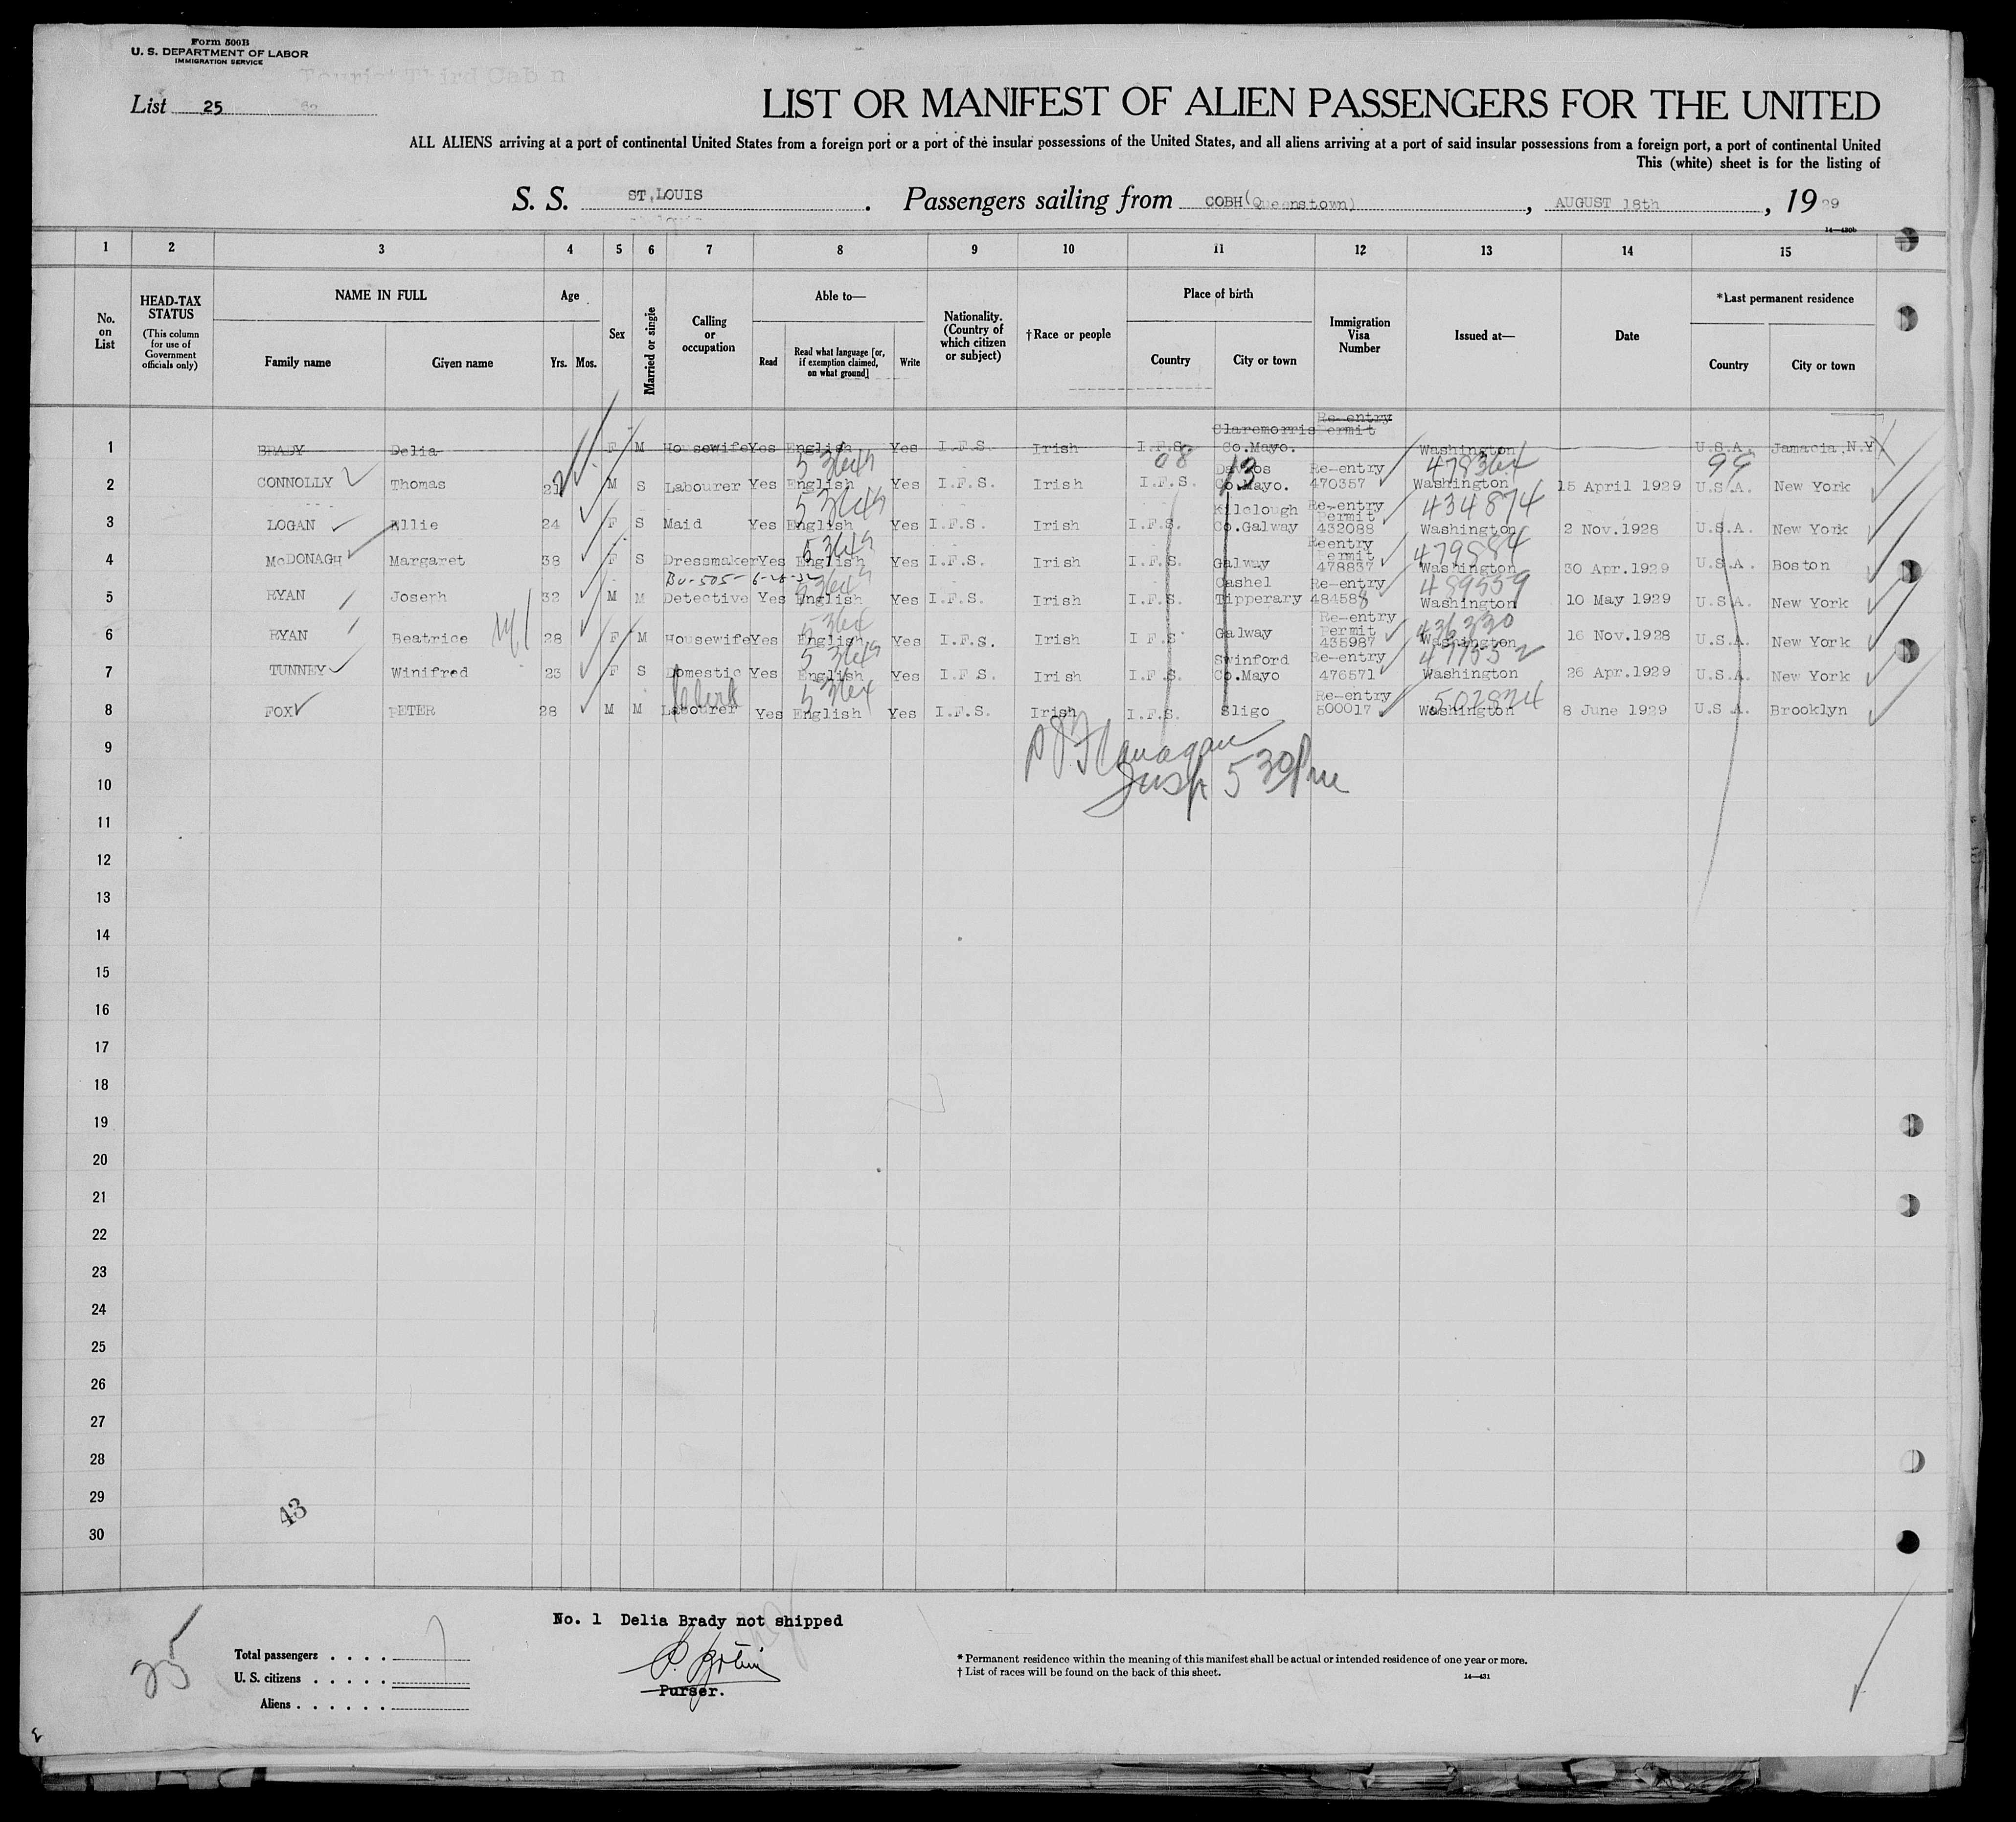 Form 500B
U. S. DEPARTMENT OF LABOR
IMMIGRATION SERVICE
Tourist Third Cabin
List 25
LIST OR MANIFEST OF ALIEN PASSENGERS FOR THE UNITED
ALL ALIENS arriving at a port of continental United States from a foreign port or a port of the insular possessions of the United States, and all aliens arriving at a port of said insular possessions from a foreign port, a port of continental United
This (white) sheet is for the listing of
S. S. ST.LOUIS. Passengers sailing from COBH(Queenstown), AUGUST 18th, 1929
14—430b
1 2 3 4 5 6 7 8 9 10 11 12 13 14 15
No. on List
HEAD-TAX STATUS (This column for use of Government officials only)
NAME IN FULL
Family name Given name
Age
Yrs. Mos.
Sex
Married or single
Calling or occupation
Able to—
Read Read what language [or, if exemption claimed, on what ground] Write
Nationality. (Country of which citizen or subject)
†Race or people
Place of birth
Country City or town
Immigration Visa Number
Issued at—
Date
*Last permanent residence
Country City or town
Claremorris Re-entry Permit
1 BRADY Delia F M Housewife Yes English Yes I.F.S. Irish I.F.S. Co.Mayo. Washington U.S.A. Jamacia,N.Y
53647 08 13 478364 99
Re-entry
2 CONNOLLY Thomas 21 M S Labourer Yes English Yes I.F.S. Irish I.F.S. Co.Mayo. 470357 Washington 15 April 1929 U.S.A. New York
53647 Kilclough Re-entry Permit 434874
3 LOGAN Ellie 24 F S Maid Yes English Yes I.F.S. Irish I.F.S. Co.Galway 432088 Washington 2 Nov.1928 U.S.A. New York
53647 Reentry Permit 479884
4 McDONAGH Margaret 38 F S Dressmaker Yes English Yes I.F.S. Irish I.F.S. Galway 478837 Washington 30 Apr.1929 U.S.A. Boston
Bu-505- 6-28-32 Cashel Re-entry 489559
5 RYAN Joseph 32 M M Detective Yes English Yes I.F.S. Irish I.F.S. Tipperary 484588 Washington 10 May 1929 U.S.A. New York
5364 Re-entry Permit 436330
6 RYAN Beatrice 28 F M Housewife Yes English Yes I.F.S. Irish I F S Galway 435987 Washington 16 Nov.1928 U.S.A. New York
53647 Swinford Re-entry
7 TUNNEY Winifred 23 F S Domestic Yes English Yes I.F.S. Irish I.F.S. Co.Mayo 476571 Washington 26 Apr.1929 U.S.A. New York
5364 Re-entry 502824
8 FOX PETER 28 M M Labourer Yes English Yes I.F.S. Irish I.F.S. Sligo 500017 Washington 8 June 1929 U.S.A. Brooklyn
9
Flanagan
10
Insp 530Pm
11
12
13
14
15
16
17
18
19
20
21
22
23
24
25
26
27
28
29
43
30
No. 1 Delia Brady not shipped
25
Total passengers . . . . 7
U. S. citizens . . . . .
Aliens . . . . . .
Purser.
* Permanent residence within the meaning of this manifest shall be actual or intended residence of one year or more.
† List of races will be found on the back of this sheet.
14—431